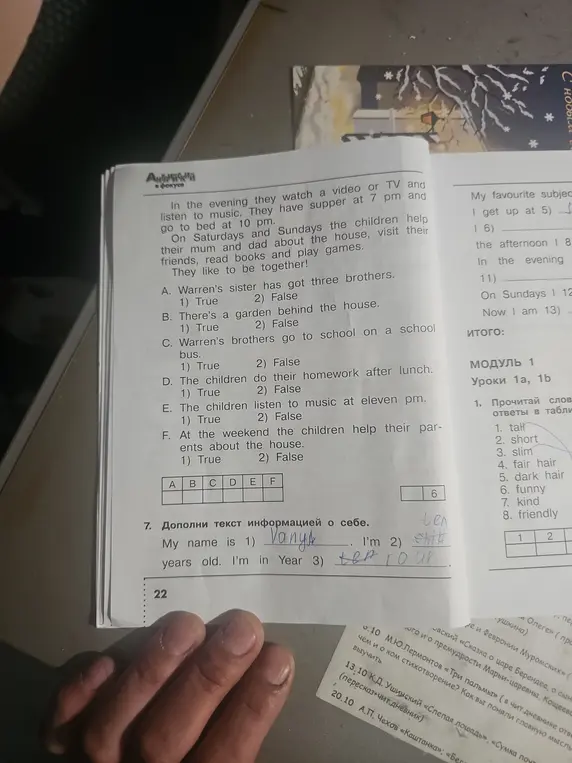 Английский
в фокусе
In the evening they watch a video or TV and
listen to music. They have supper at 7 pm and
go to bed at 10 pm.
On Saturdays and Sundays the children help
their mum and dad about the house, visit their
friends, read books and play games.
They like to be together!
A. Warren's sister has got three brothers.
1) True 2) False
B. There's a garden behind the house.
1) True 2) False
C. Warren's brothers go to school on a school
bus.
1) True 2) False
D. The children do their homework after lunch.
1) True 2) False
E. The children listen to music at eleven pm.
1) True 2) False
F. At the weekend the children help their par-
ents about the house.
1) True 2) False
A B C D E F
6
7. Дополни текст информацией о себе.
ten
My name is 1) Vanya. I'm 2)
years old. I'm in Year 3) ten
22
My favourite subjec
I get up at 5)
I 6)
the afternoon I 8
In the evening
11)
On Sundays I 12
Now I am 13)
ИТОГО:
МОДУЛЬ 1
Уроки 1a, 1b
1. Прочитай слов
ответы в табли
1. tall
2. short
3. slim
4. fair hair
5. dark hair
6. funny
7. kind
8. friendly
1 2
С новым
.10 М.Ю.Лермонтов «Три пальмы» ( в чит.дневнике отве
чем и о ком стихотворение? Как вы поняли главную мысль
выучить
13.10 К.Д. Ушинский «Слепая лошадь», «Сумка поч
(пересказ+чит.дневник)
20.10 А.П. Чехов «Каштанка»,